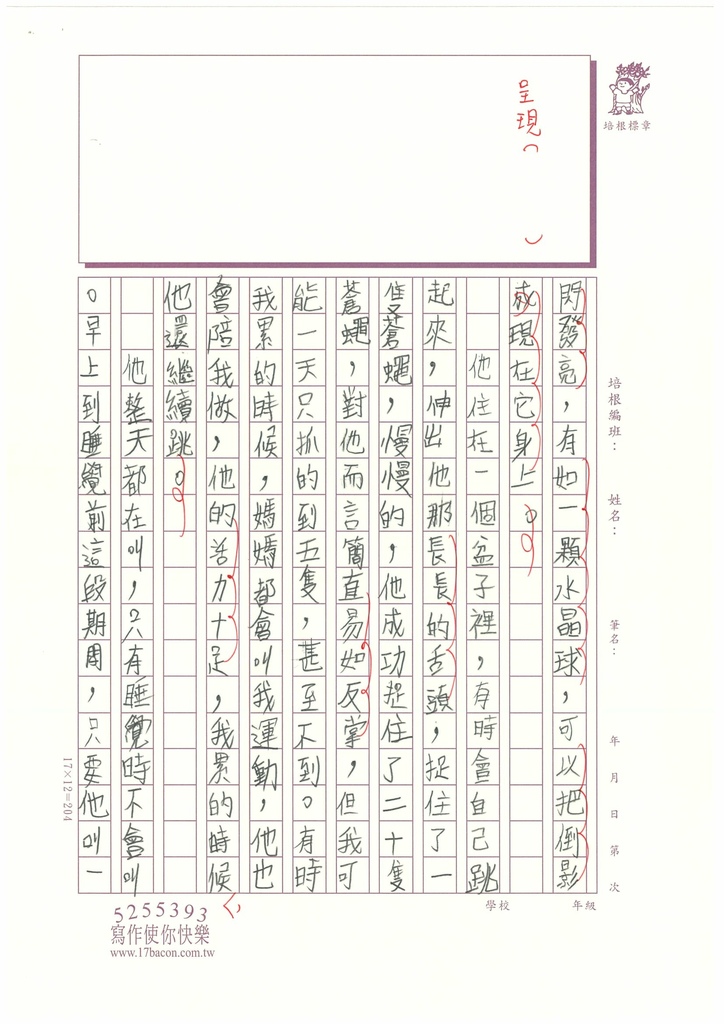 呈現（　）
培根標章
閃發亮，有如一顆水晶球，可以把倒影
成現在它身上。
他住在一個盆子裡，有時會自己跳
起來，伸出他那長長的舌頭，捉住了一
隻蒼蠅，慢慢的，他成功捉住了二十隻
蒼蠅，對他而言簡直易如反掌，但我可
能一天只抓的到五隻，甚至不到。有時
我累的時候，媽媽都會叫我運動，他也
會陪我做，他的活力十足，我累的時候
他還繼續跳。
他整天都在叫，只有睡覺時不會叫
。早上到睡覺前這段期間，只要他叫一
培根編班：
姓名：
筆名：
年 月 日 第 次
學校
年級
17×12=204
5255393
寫作使你快樂
www.17bacon.com.tw